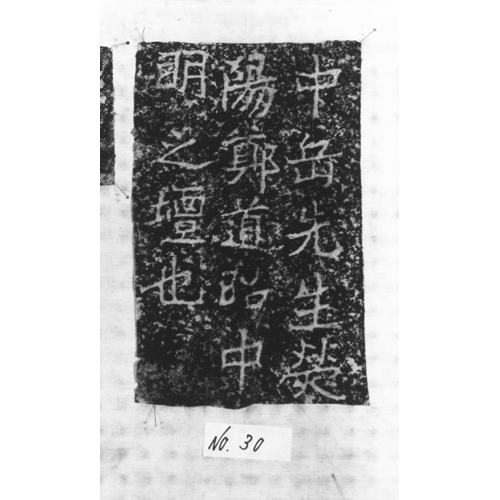 中岳先生熒
陽鄭道昭中
明之壇也
No. 30